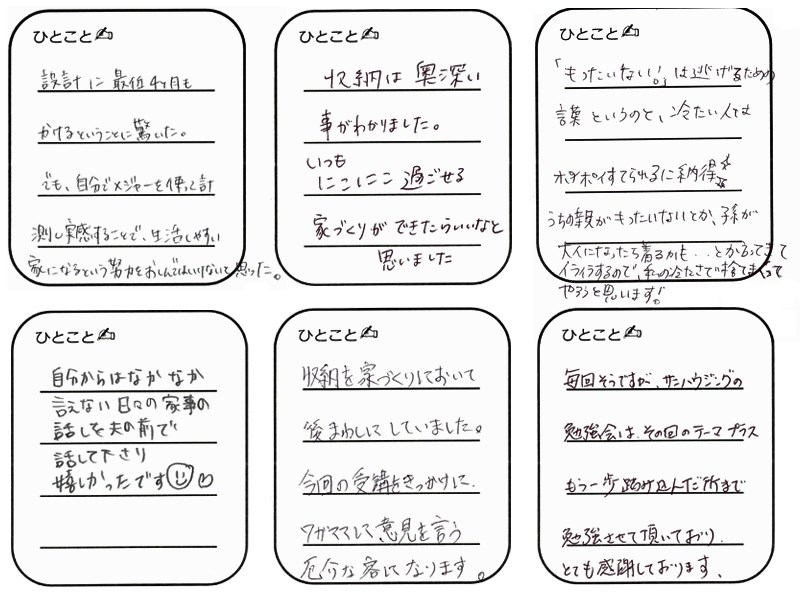 ひとこと✍
設計に最低4ヶ月も
かけるということに驚いた。
でも、自分でメジャーを使って計
測し実感することで、生活しやすい
家になるという努力をおしんではいけないて思った。
ひとこと✍
収納は奥深い
事がわかりました。
いつも
にこにこ過ごせる
家づくりができたらいいなと
思いました
ひとこと✍
「もったいない！」は逃げるための
言葉というのと、冷たい人では
ホポイすてられるに納得
うちの親がもったいないとか、孫が
大人になったら着るかも‥とか言ってきて
イライラするので、私の冷たさで捨てまくって
やろうと思います！
ひとこと✍
自分からはなかなか
言えない日々の家事の
話しを夫の前で
話して下さり
嬉しかったです
ひとこと✍
収納を家づくりにおいて
後まわしにしていました。
今回の受講をきっかけに、
ワガママして意見を言う
厄介な客になります。
ひとこと✍
毎回そうですが、サンハウジングの
勉強会は、その回のテーマプラス
もう一歩踏み込んだ所まで
勉強させて頂いており、
とても感謝しております、